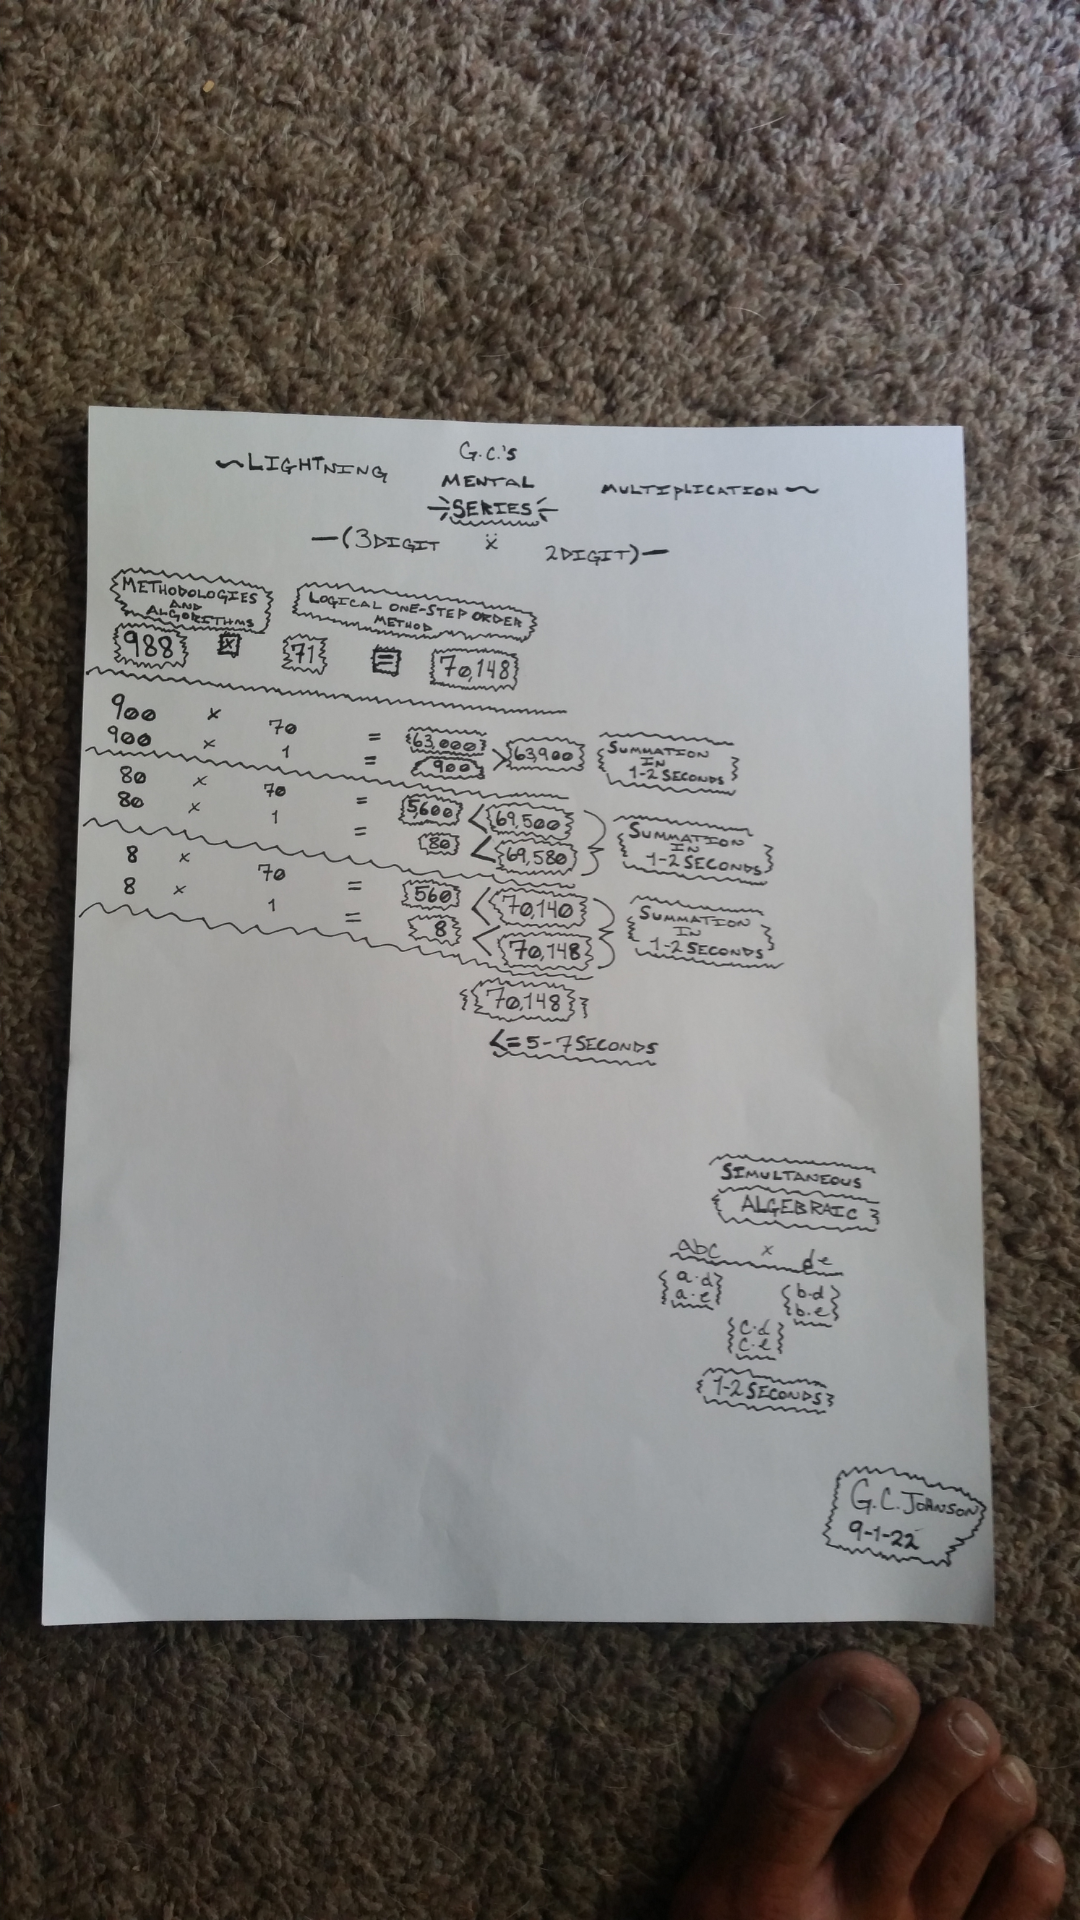 G.C.'s
~LIGHTNING MENTAL MULTIPLICATION~
SERIES
—(3DIGIT x 2DIGIT)—
METHODOLOGIES
AND
ALGORITHMS
LOGICAL ONE-STEP ORDER
METHOD
988 x 71 = 70,148
900 x 70 = 63,000
900 x 1 = 900 > 63,900
SUMMATION
IN
1-2 SECONDS
80 x 70 = 5,600 < 69,500
80 x 1 = 80 < 69,580
SUMMATION
IN
1-2 SECONDS
8 x 70 = 560 < 70,140
8 x 1 = 8 < 70,148
SUMMATION
IN
1-2 SECONDS
70,148
<= 5-7 SECONDS
SIMULTANEOUS
ALGEBRAIC
abc x de
a·d b·d
a·e b·e
c·d
c·e
1-2 SECONDS
G.C. JOHNSON
9-1-22